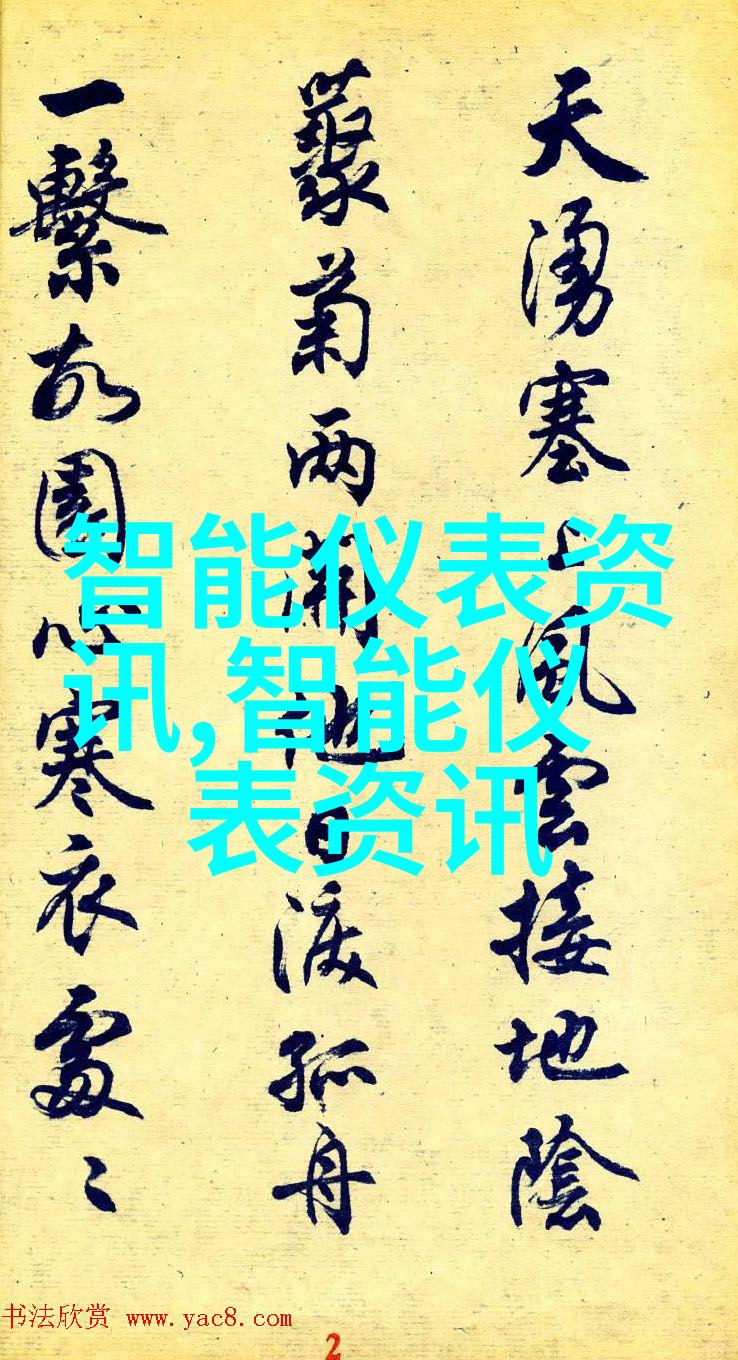 天湧塞上風雲接地陰
藂菊两開他日淚孤舟
一繫故園心寒衣處〻
智能仪表资
讯,智能仪
表资讯
书法欣赏 www.yac8.com
2